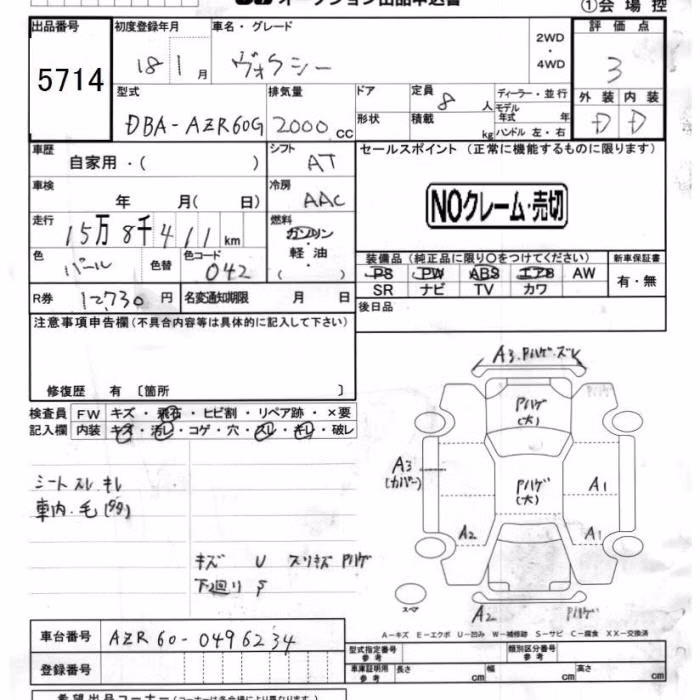 オークション出品申込書
①会場控
出品番号 初度登録年月 車名・グレード 評価点
5714 18 1月 ヴォクシー 2WD・4WD 3
型式 排気量 ドア 定員 8人 ディーラー・並行 外装 内装
DBA-AZR60G 2000cc 形状 積載 kg モデル年式 年 ハンドル 左・右 D D
車歴 自家用・( ) シフト AT セールスポイント (正常に機能するものに限ります)
車検 年 月( 日) 冷房 AAC NOクレーム・売切
走行 15万8千411km 燃料 ガソリン・軽油・( )
色 パール 色替 色コード 042 装備品 (純正品に限り〇をつけてください) 新車保証書
PS PW ABS エアB AW 有・無
SR ナビ TV カワ
R券 12,730円 名変通知期限 月 日 後日品
注意事項申告欄 (不具合内容等は具体的に記入して下さい)
修復歴 有 〔箇所 〕
検査員記入欄 FW キズ・飛石・ヒビ割・リペア跡・×要
内装 キズ・汚レ・コゲ・穴・スレ・キレ・破レ
A3.Pハゲ.ズレ
Pハゲ(大)
Pハゲ
A3(カバー)
Pハゲ(大)
A1
A2 A1
シートスレ キレ
車内・毛(多)
キズ U スリキズ Pハゲ
下廻り S
スペア
A2 Pハゲ
A-キズ E-エクボ U-凹み W-補修跡 S-サビ C-腐食 XX-交換済
車台番号 AZR60-0496234
型式指定番号 参考 類別区分番号 参考
登録番号 車庫証明用 参考 長さ cm 幅 cm 高さ cm
希望出品コーナー (コーナーは各会場により異なります)